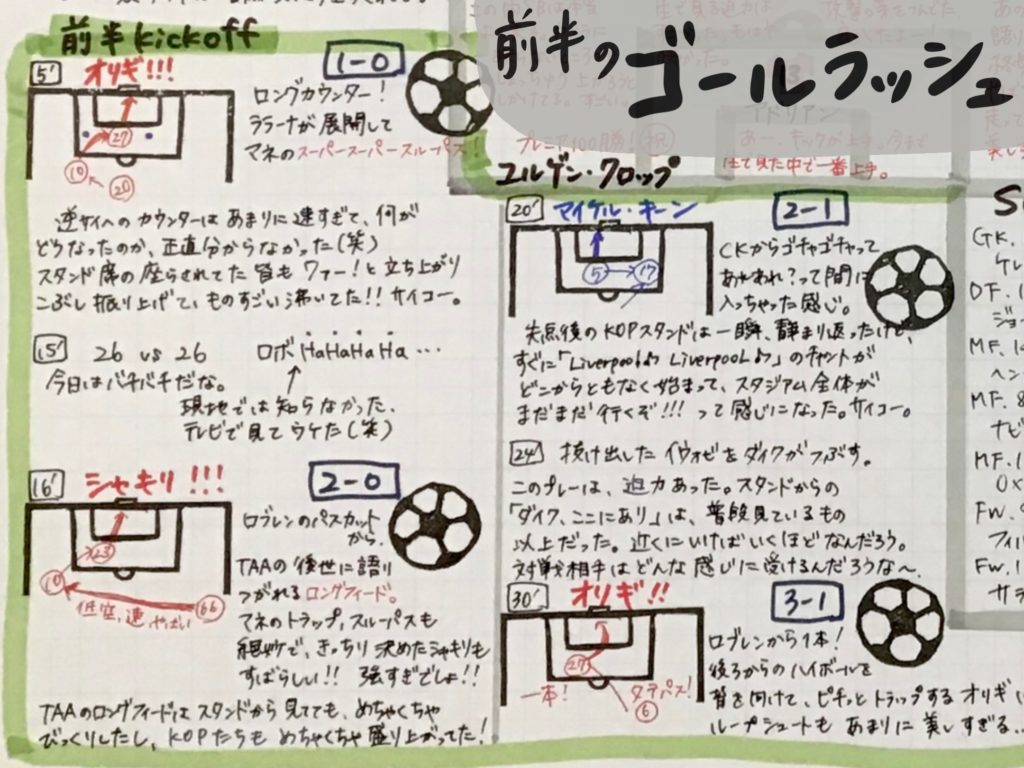 前半のゴールラッシュ
前半 kickoff
5'
オリギ!!!
1-0
27
10
20
ロングカウンター!
ララーナが展開して
マネのスーパースーパースルーパス!
逆サイへのカウンターはあまりに速すぎて、何が
どうなったのか、正直分からなかった(笑)
スタンド席の座らされてた皆もワァー!と立ち上がり
こぶし振り上げて、ものすごい沸いてた!! サイコー。
15'
26 vs 26
ロボHaHaHaHa…
今日はバチバチだな。
現地では知らなかった、
テレビで見てウケた(笑)
16'
シャキリ!!!
2-0
23
10
66
低空、速、やばい
ロブレンのパスカット
から、
TAAの後世に語り
つがれるロングフィード。
マネのトラップ、スルーパスも
絶妙で、きっちり決めたシャキリも
すばらしい!! 強すぎでしょ!!
TAAのロングフィードはスタンドから見てても、めちゃくちゃ
びっくりしたし、KOPたちもめちゃくちゃ盛り上がってた!
プレミア100勝!(祝)
ユルゲン・クロップ
アドリアン
あー、キックが上手。今まで
生で見た中で一番上手。
20'
マイケル・キーン
2-1
5
17
CKからゴチャゴチャって
あれあれ?って間に
入っちゃった感じ。
失点後のKOPスタンドは一瞬、静まり返ったけど、
すぐに「Liverpool♪ Liverpool♪」のチャントが
どこからともなく始まって、スタジアム全体が
まだまだ行くぞ!!! って感じになった。サイコー。
24'
抜け出したイウォビをダイクがつぶす。
このプレーは、迫力あった。スタンドからの
「ダイク、ここにあり」は、普段見ているもの
以上だった。近くにいけばいくほどなんだろう。
対戦相手はどんな感じに受けるんだろうな〜。
30'
オリギ!!
3-1
27
一本!
タテパス!
6
ロブレンから1本!
後ろからのハイボールを
背を向けて、ピチっとトラップするオリギ
ループシュートもあまりに美しすぎる…
S
GK.
DF.
MF.
ヘン
MF. 8
ナビ
MF. 1
Fw. 9
フィル
Fw. 1
サラ